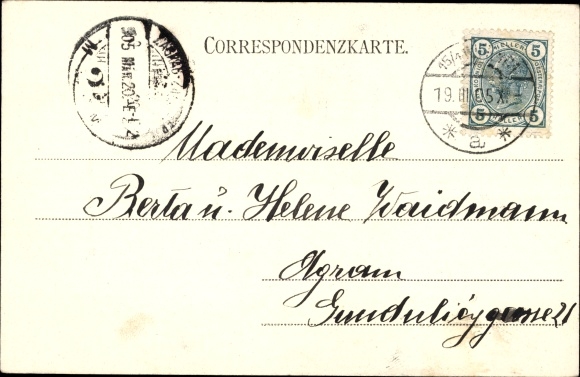 CORRESPONDENZKARTE.
5 HELLER 5
5 HELLER 5
19.III.05.X
* a *
905 MAR. 20
Mademoiselle
Berta u. Helene Waidmann
Agram
Gundulićgasse 21